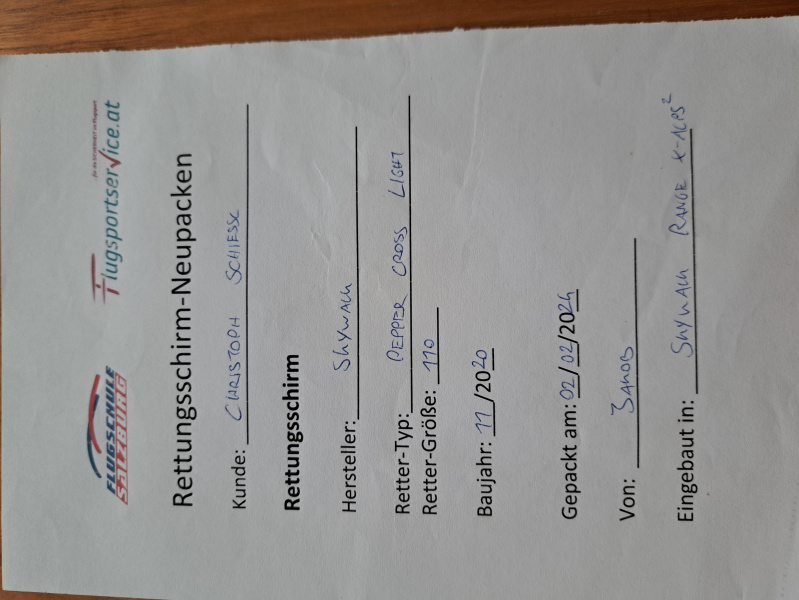 FLUGSCHULE
SALZBURG
Flugsportservice.at
Rettungsschirm-Neupacken
Kunde: CHRISTOPH SCHIESSL
Rettungsschirm
Hersteller: SKYWALK
Retter-Typ: PEPPER CROSS LIGHT
Retter-Größe: 110
Baujahr: 11/2020
Gepackt am: 02/02/2024
Von: JAKOB
Eingebaut in: SKYWALK RANGE X-ALPS²